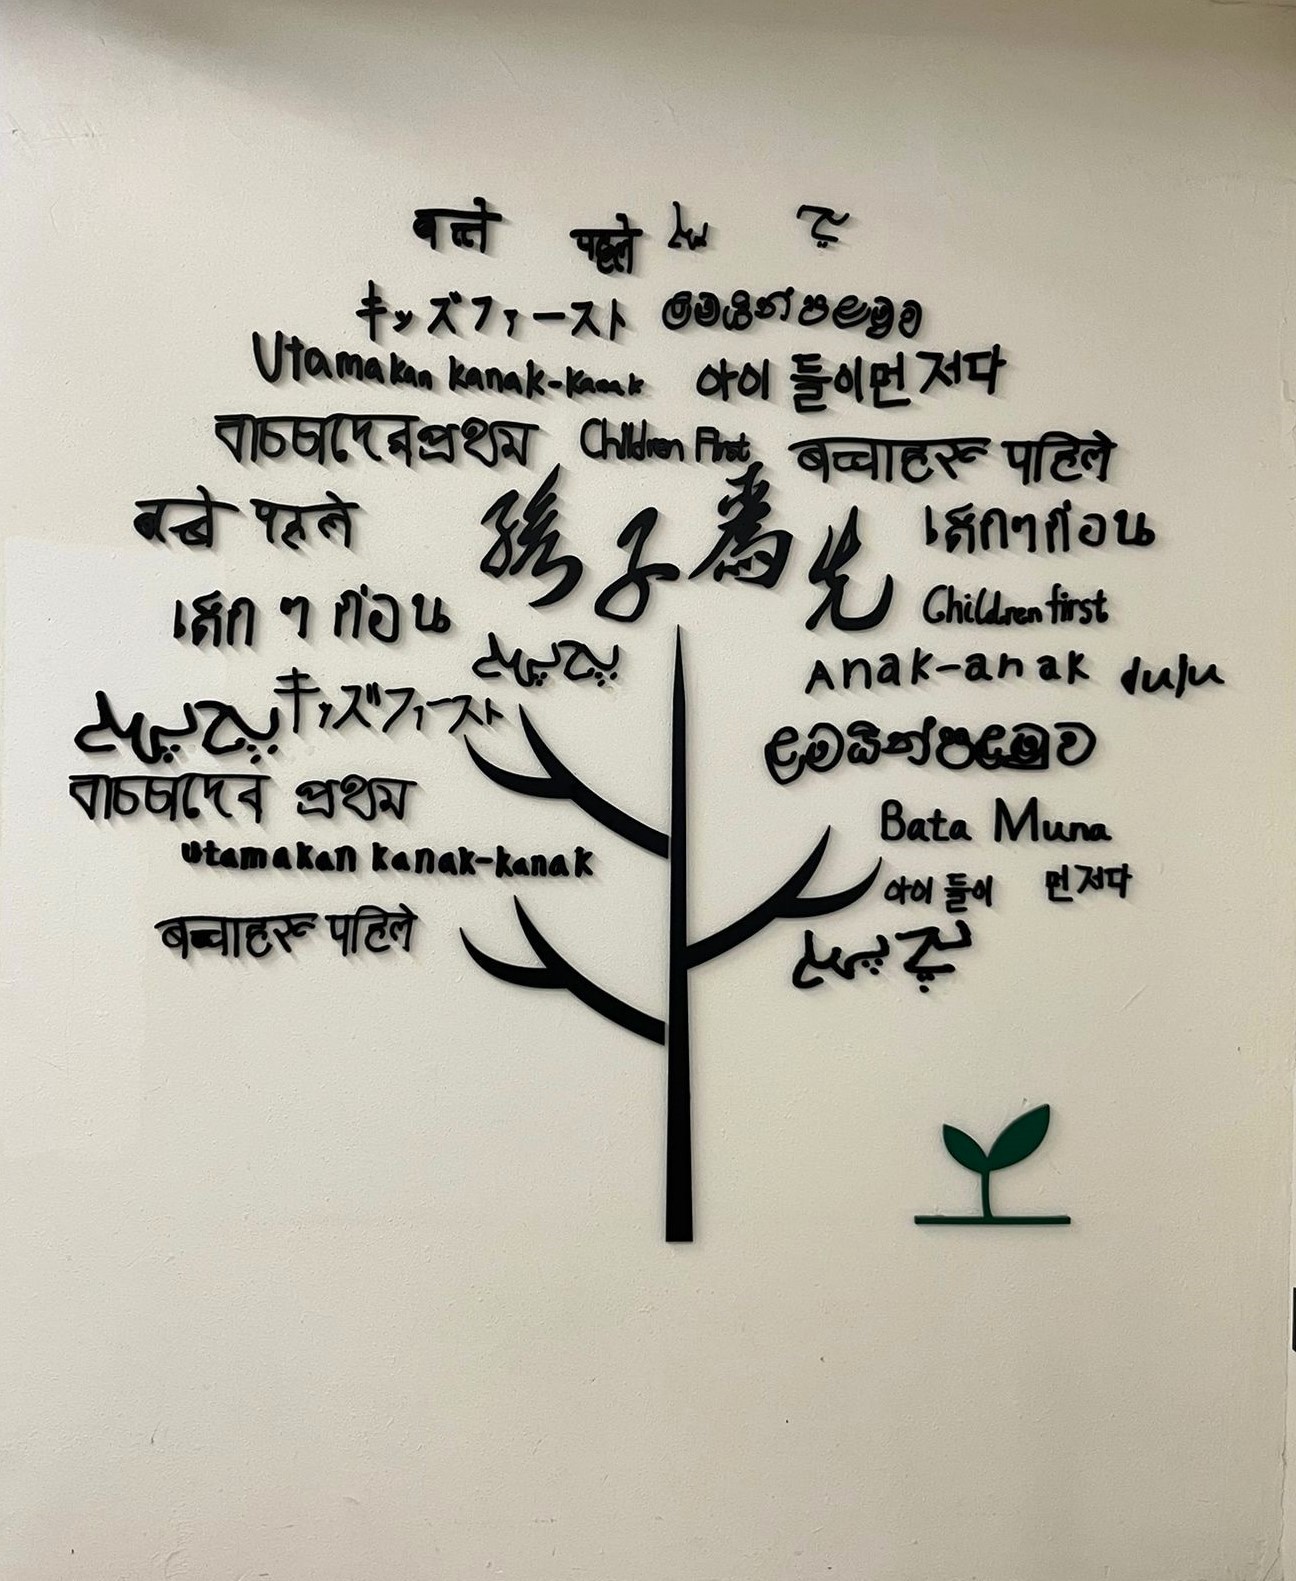 बच्चे पहले
キッズファースト ළමයින් පළමුව
Utamakan kanak-kanak 아이 들이먼 저다
বাচচাদেরপ্রথম Children First बच्चाहरू पहिले
बच्चे पहले 孩子為先 เด็กๆก่อน
เด็ก ๆ ก่อน Children first
Anak-anak dulu
キッズファースト ළමයින් පළමුව
বাচচাদের প্রথম Bata Muna
Utamakan kanak-kanak 아이 들이 먼저다
बच्चाहरू पहिले